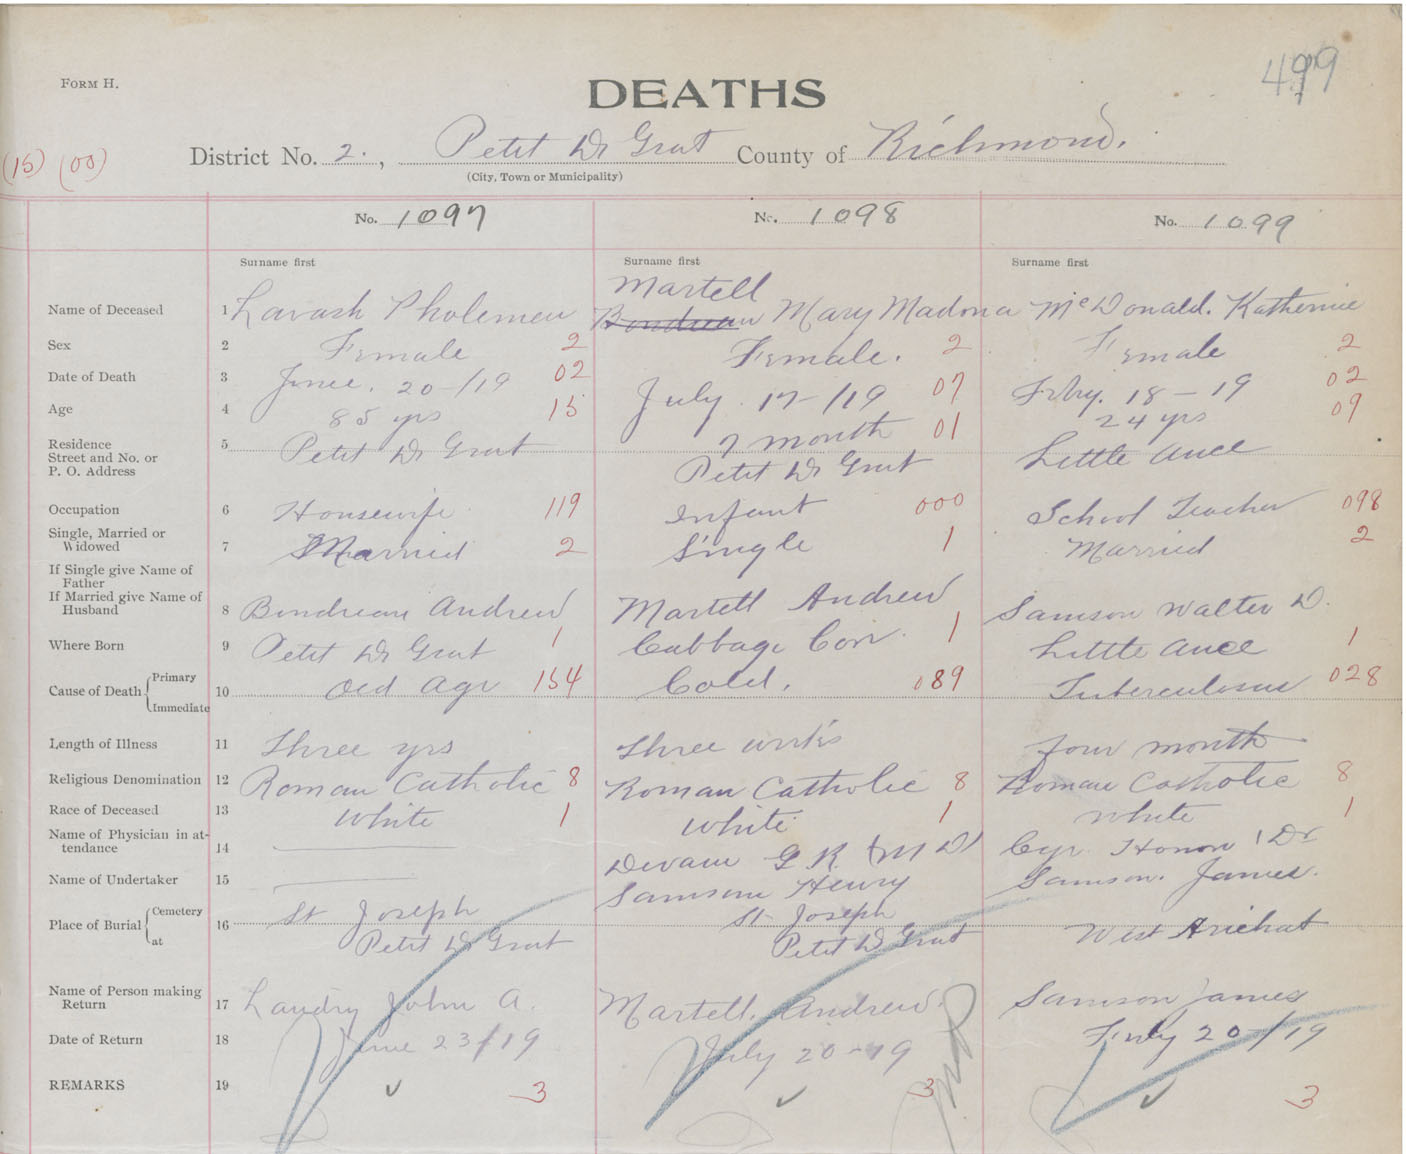 FORM H.
DEATHS
499
(15) (00)
District No. 2., Petit De Grat County of Richmond.
(City, Town or Municipality)
No. 1097 No. 1098 No. 1099
Surname first Surname first Surname first
Martell
Name of Deceased 1 Lavash Pholemen Boudreau Mary Madona McDonald. Katherine
Sex 2 Female 2 Female. 2 Female 2
Date of Death 3 June. 20-/19 02 July 17-/19 07 Feby. 18-19 02
Age 4 85 yrs 15 7 month 01 24 yrs 09
Residence 5 Petit De Grat Petit De Grat Little Ance
Street and No. or
P. O. Address
Occupation 6 Housewife 119 Infant 000 School Teacher 098
Single, Married or
Widowed 7 Married 2 Single 1 Married 2
If Single give Name of
Father
If Married give Name of
Husband 8 Boudreau Andrew Martell Andrew Samson Walter D.
Where Born 9 Petit De Grat 1 Cabbage Cov. 1 Little Ance 1
Cause of Death Primary 10 Old Age 154 Cold. 089 Tuberculosus 028
Immediate
Length of Illness 11 Three yrs Three weeks four month
Religious Denomination 12 Roman Catholic 8 Roman Catholic 8 Roman Catholic 8
Race of Deceased 13 White 1 White 1 White 1
Name of Physician in at-
tendance 14 G R (M D) Cyr Honor (Dr
Name of Undertaker 15 Samson Henry Samson. James.
Place of Burial Cemetery 16 St Joseph St Joseph West Arichat
at Petit De Grat Petit De Grat
Name of Person making
Return 17 Landry John A. Martell. Andrew. Samson James
Date of Return 18 June 23/19 July 20-19 20-/19
REMARKS 19 ✓ 3 ✓ 3 ✓ 3